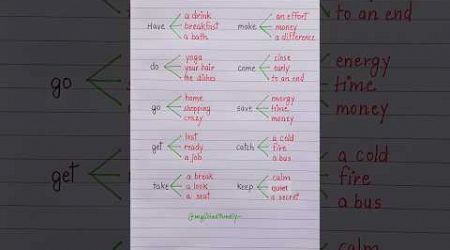 go
get
Have
a drink
breakfast
a bath
make
an effort
money
a difference
do
yoga
your hair
the dishes
come
close
early
to an end
go
home
shopping
crazy
save
energy
time
money
get
lost
ready
a job
catch
a cold
fire
a bus
take
a break
a look
a seat
keep
calm
quiet
a secret
to an end
energy
time
money
a cold
fire
a bus